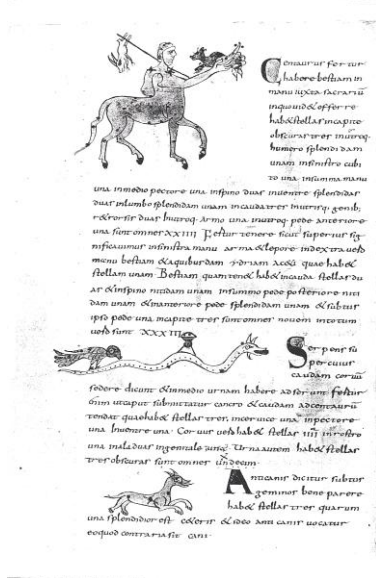 Centaurus fertur
habere bestiam in
manu iuxta sacrariū
in quo uide & offerre
hab& stellas in capite
obscuras tres in utroq·
humero splendidam
unam in sinistro cubi
to una in summa manu
una in medio pectore una in spino duas in uentre splendidas
duas in lumbo splendidam unam in cauda tres in utrisq· genib;
una sunt omnes XXIIII Fertur tenere sicut superius sig
nificauimus in sinistra manu arma & lepore in dextra uero
manu bestiam & a quibusdam ydriam
stellam unam Bestiam quam ten& hab& in cauda stellas du
as & in spino nitidam unam in summo pede posteriore niti
dam unam & in anteriore pede splendidam unam & subtus
ipso pede una in capite tres sunt omnes nouem in totum
uero sunt XXXIII
Serpens su
per cuius
caudam coruū
sedere dicunt & in medio urnam habere
enim ut caput submittatur cancro & caudam ad centaurū
tendat quae hab& stellas tres in ceruice una in pectore
una in uentre una Coruus uero hab& stellas IIII in rostro
una in ala duas Urna autem hab& stellas
tres obscuras sunt omnes undecim
Anticanis dicitur subtus
geminos bene parere
hab& stellas tres quarum
una splendidior est & ideo anti canis uocatur
eo quod contraria sit cani